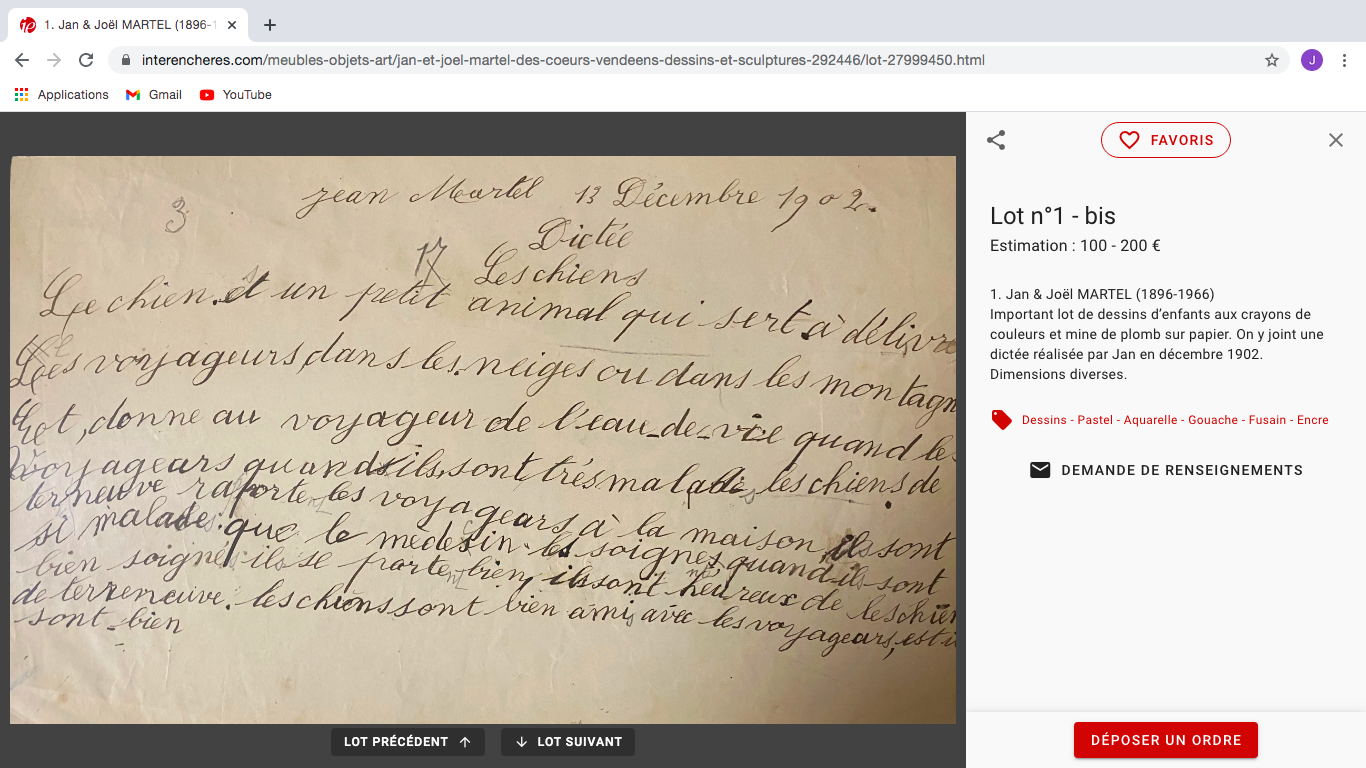 1. Jan & Joël MARTEL (1896-1
interencheres.com/meubles-objets-art/jan-et-joel-martel-des-coeurs-vendeens-dessins-et-sculptures-292446/lot-27999450.html
J
Applications Gmail YouTube
3
jean Martel 13 Décembre 1902.
Dictée
17
Les chiens
Le chien est un petit animal qui sert à délivre
Les voyageurs, dans les neiges ou dans les montagn
et, donne au voyageur de l'eau-de-vie quand les
Voyageurs quand ils sont trés malades les chiens de
terneuve raportent les voyageurs à la maison, ils sont
si malades que le médecin les soignes quand ils sont
bien soignés ils se portent bien, ils sont heureux de les chien
de terreneuve. les chiens sont bien amis avec les voyageurs, est i
sont bien
LOT PRÉCÉDENT
LOT SUIVANT
FAVORIS
Lot n°1 - bis
Estimation : 100 - 200 €
1. Jan & Joël MARTEL (1896-1966)
Important lot de dessins d’enfants aux crayons de
couleurs et mine de plomb sur papier. On y joint une
dictée réalisée par Jan en décembre 1902.
Dimensions diverses.
Dessins - Pastel - Aquarelle - Gouache - Fusain - Encre
DEMANDE DE RENSEIGNEMENTS
DÉPOSER UN ORDRE